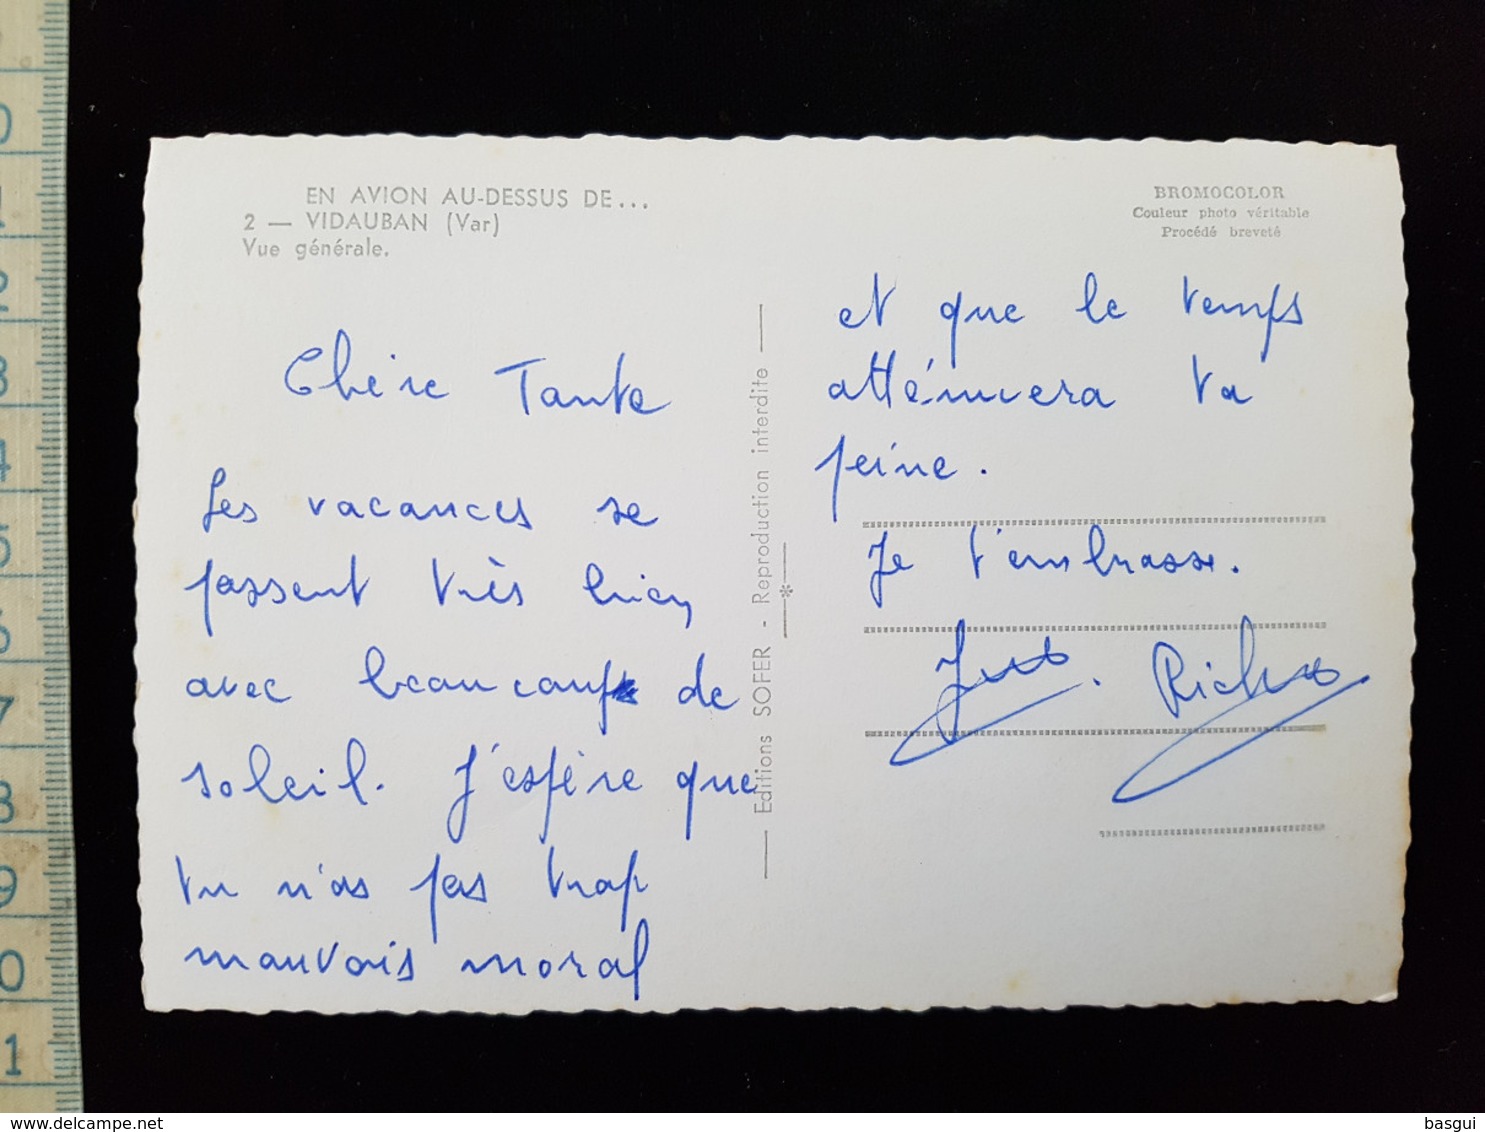 EN AVION AU-DESSUS DE...
2 — VIDAUBAN (Var)
Vue générale.
BROMOCOLOR
Couleur photo véritable
Procédé breveté
Chère Tante
Les vacances se
passent très bien
avec beaucoup de
soleil. J'espère que
tu n'as pas trop
mauvais moral
Editions SOFER - Reproduction interdite
et que le temps
atténuera ta
peine.
Je t'embrasse.
0
1
2
3
4
5
6
7
8
9
0
1
delcampe.net
basgui